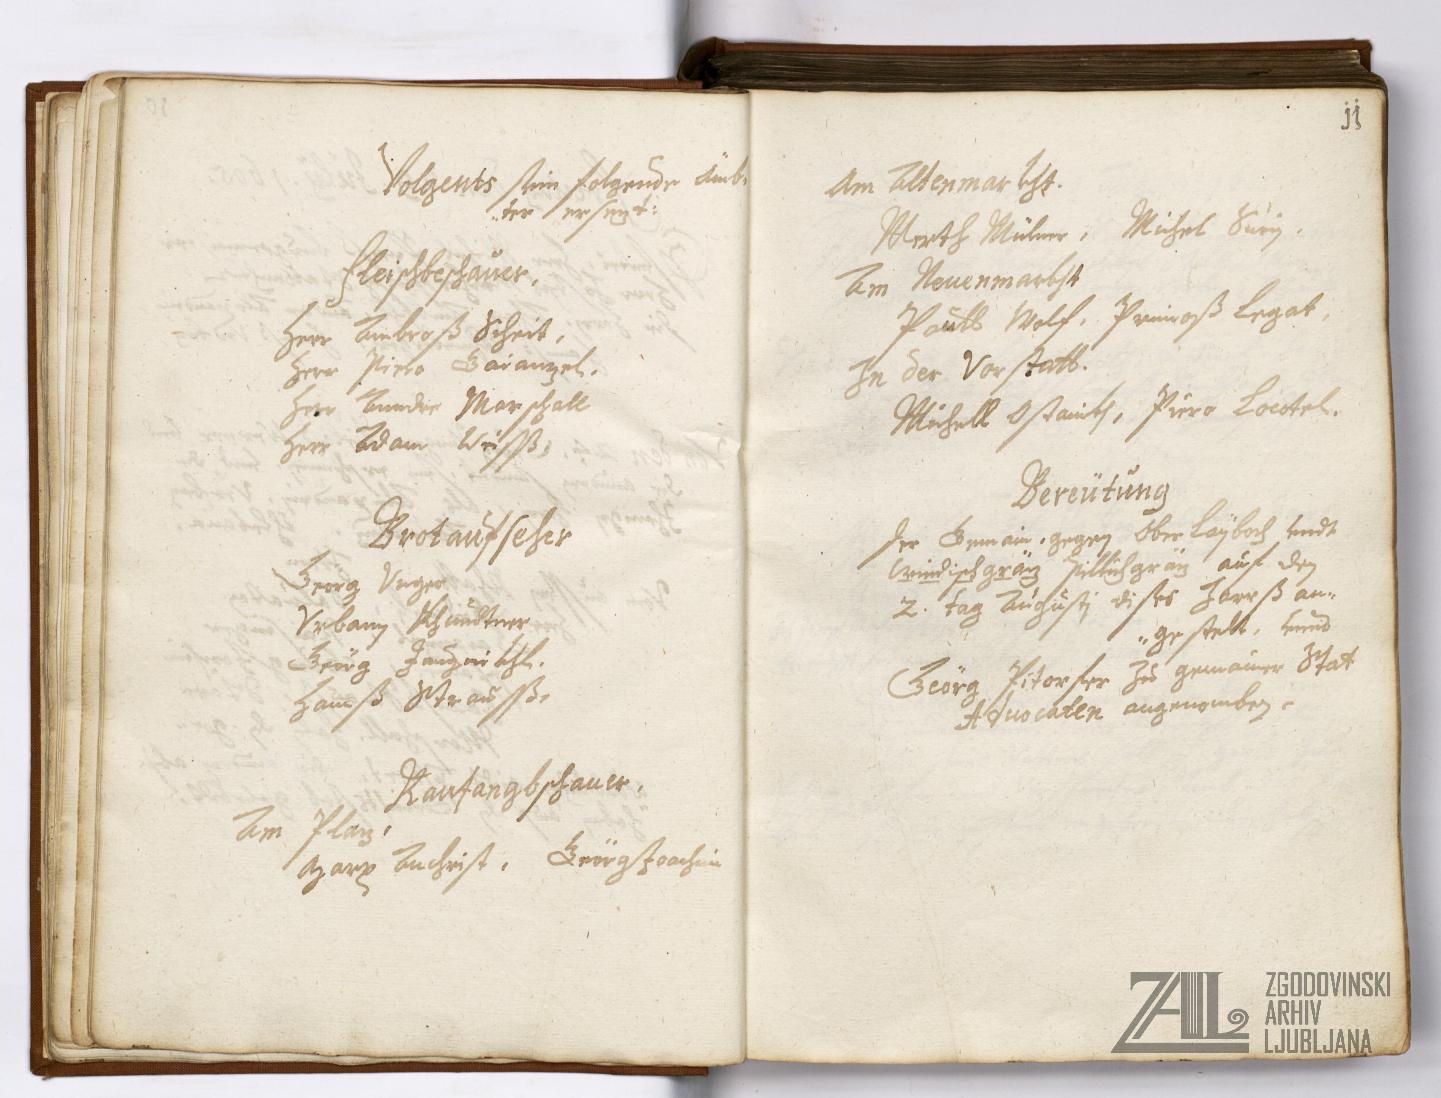 Volgents sein folgende Ämb-
ter ersezt:
Fleischbeschauer.
Herr Ambroß Scheit,
Herr Piero Gaianzel.
Herr Anndre Marschall
Herr Adam Weiss,
Brotaufseher
Geörg Unger
Urban Khundtner
Geörg
Hannß Strauss,
Raufangbschauer.
Am Plaz,
Marx Anchrist, Geörg Joachim
jj
Am Altenmarkht.
Merth Mülner, Michel
Am Neuenmarkht
Paull Wolf, Primoß Legat,
In der Vorstatt.
Michell Piero
Bereütung
der Gemain, gegen Ober Laÿbach undt
windischgräz Pillichgräz auf den
2. tag Augusti dises Jarß an-
gestelt, unnd
Geörg Pitorfer zu gemainer Stat
Advocaten angenomben.
ZAL
ZGODOVINSKI
ARHIV
LJUBLJANA